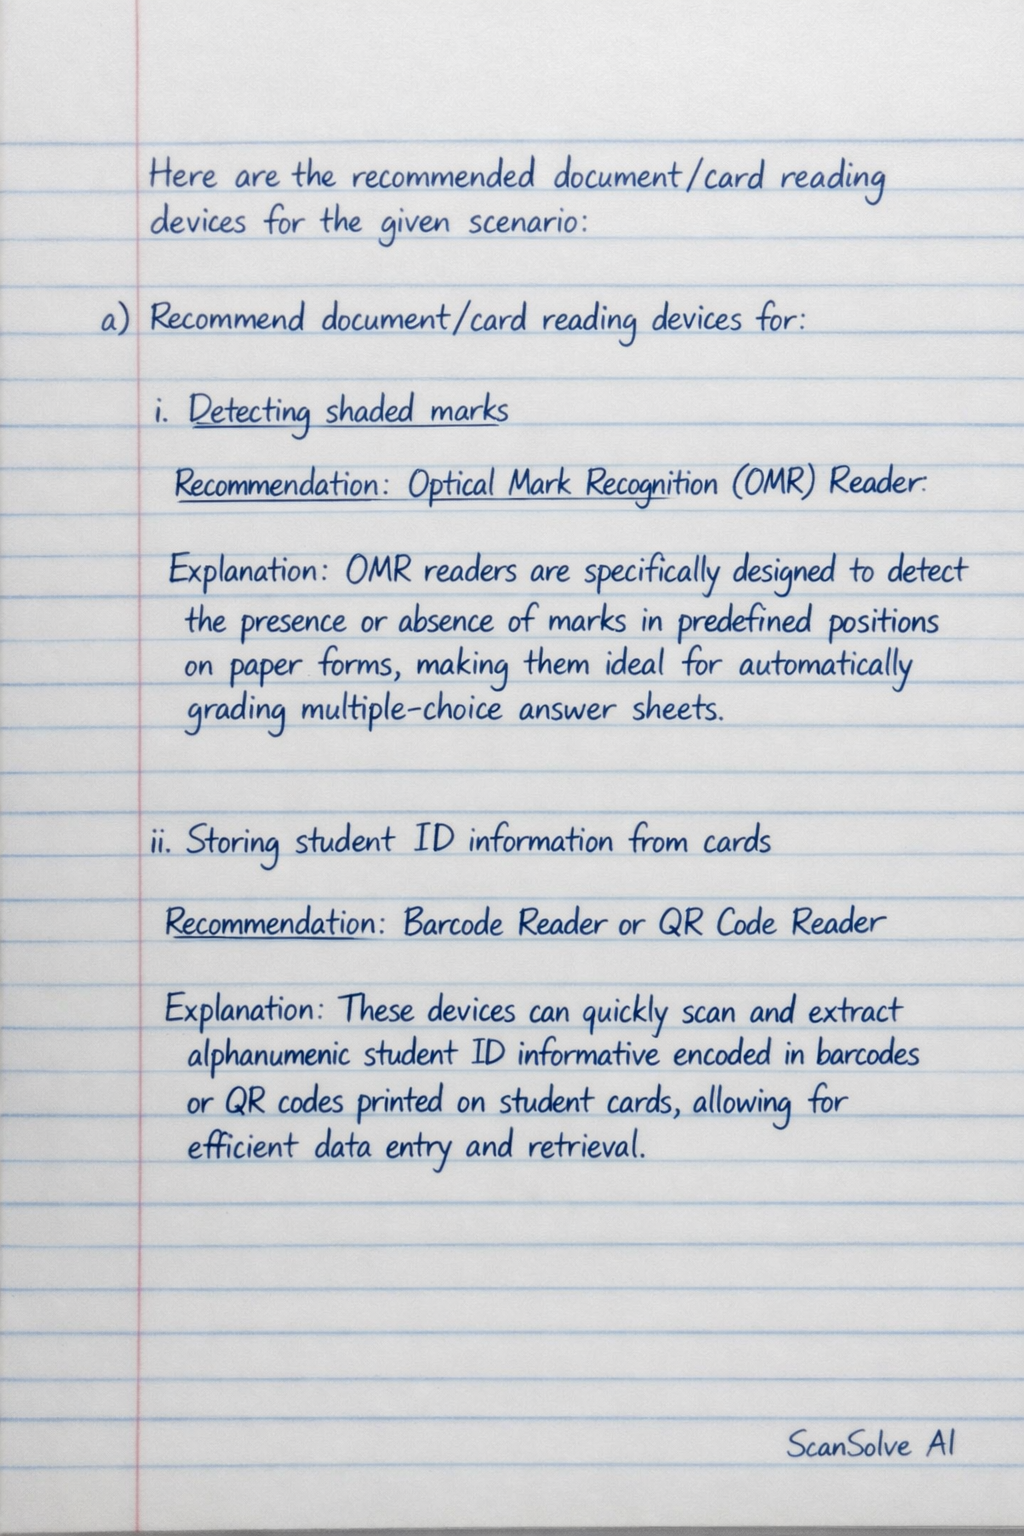 Here are the recommended document/card reading
devices for the given scenario:
a) Recommend document/card reading devices for:
i. Detecting shaded marks
Recommendation: Optical Mark Recognition (OMR) Reader.
Explanation: OMR readers are specifically designed to detect
the presence or absence of marks in predefined positions
on paper forms, making them ideal for automatically
grading multiple-choice answer sheets.
ii. Storing student ID information from cards
Recommendation: Barcode Reader or QR Code Reader
Explanation: These devices can quickly scan and extract
alphanumenic student ID informative encoded in barcodes
or QR codes printed on student cards, allowing for
efficient data entry and retrieval.
ScanSolve AI